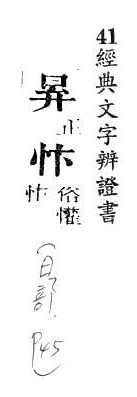 41經典文字辨證書
昇正
忭俗懽
忭
(日部.
P45)